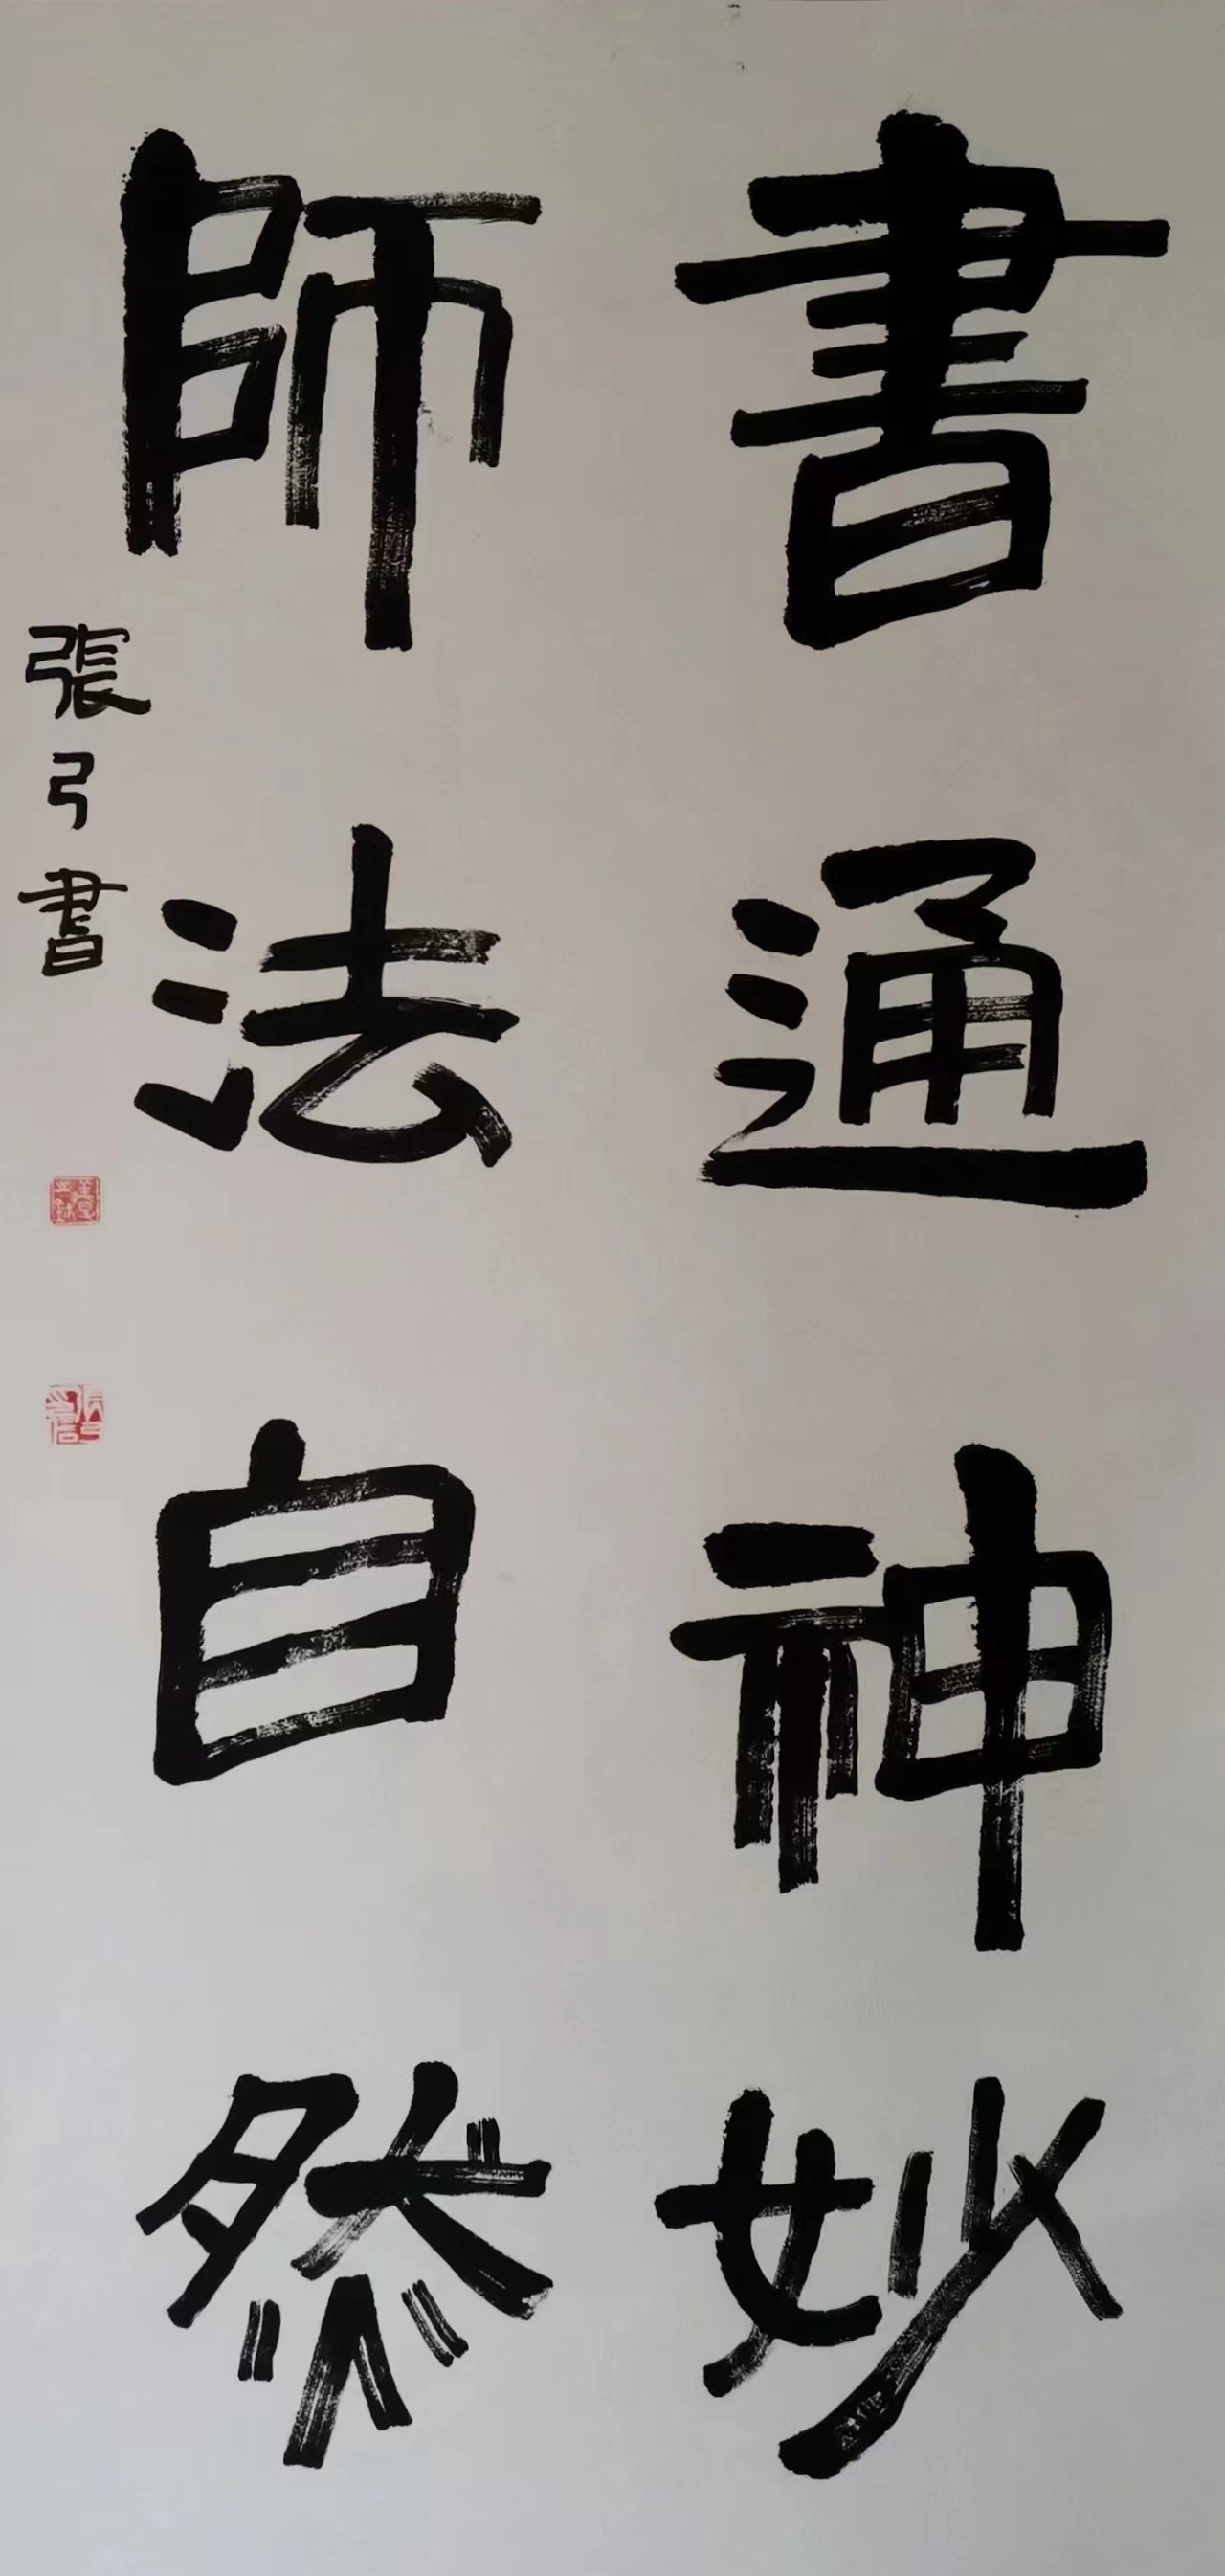 書通神妙
師法自然
張弓書